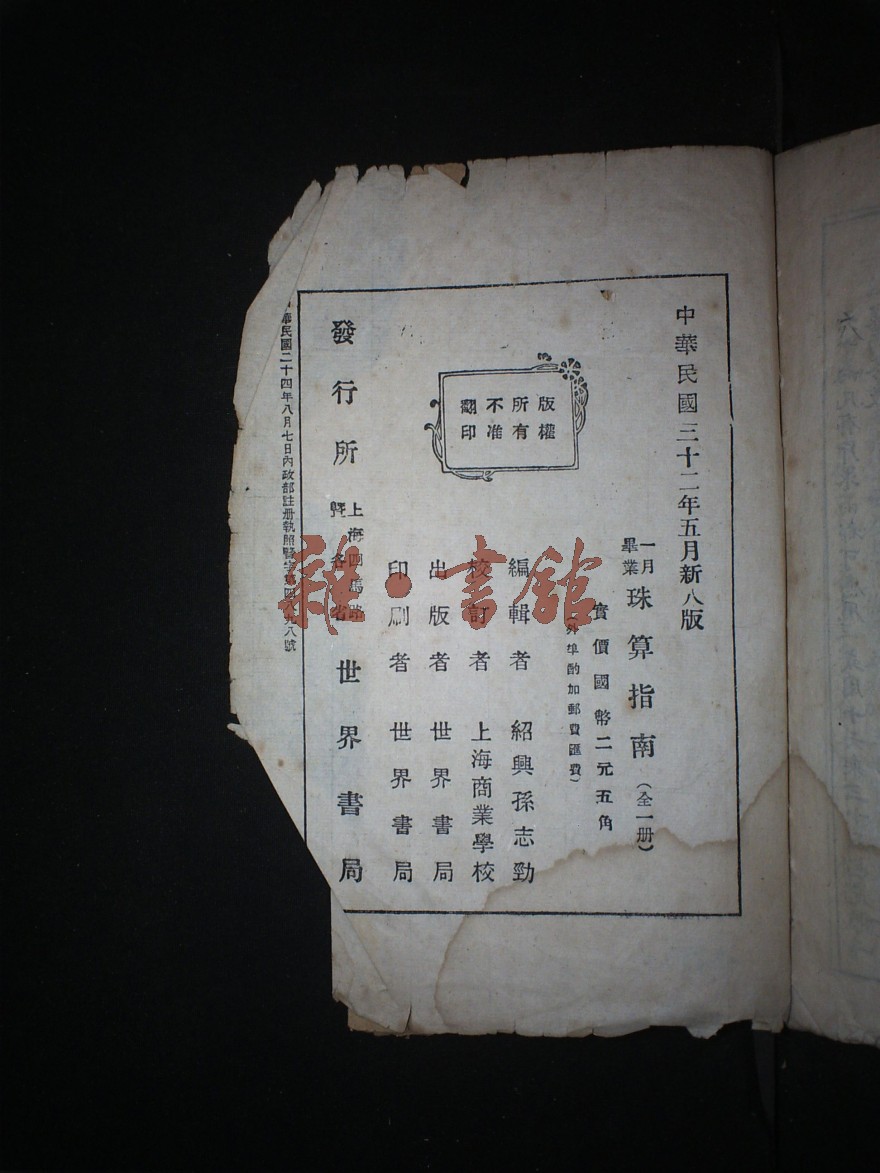 中華民國三十二年五月新八版
一月畢業 珠算指南 (全一册)
實價國幣二元五角
(外埠酌加郵費匯費)
版權
所有
不准
翻印
編輯者 紹興孫志勁
校訂者 上海商業學校
出版者 世界書局
印刷者 世界書局
發行所 上海四馬路暨各省 世界書局
華民國二十四年八月七日內政部註册執照警字第四八九八號
雜·書館